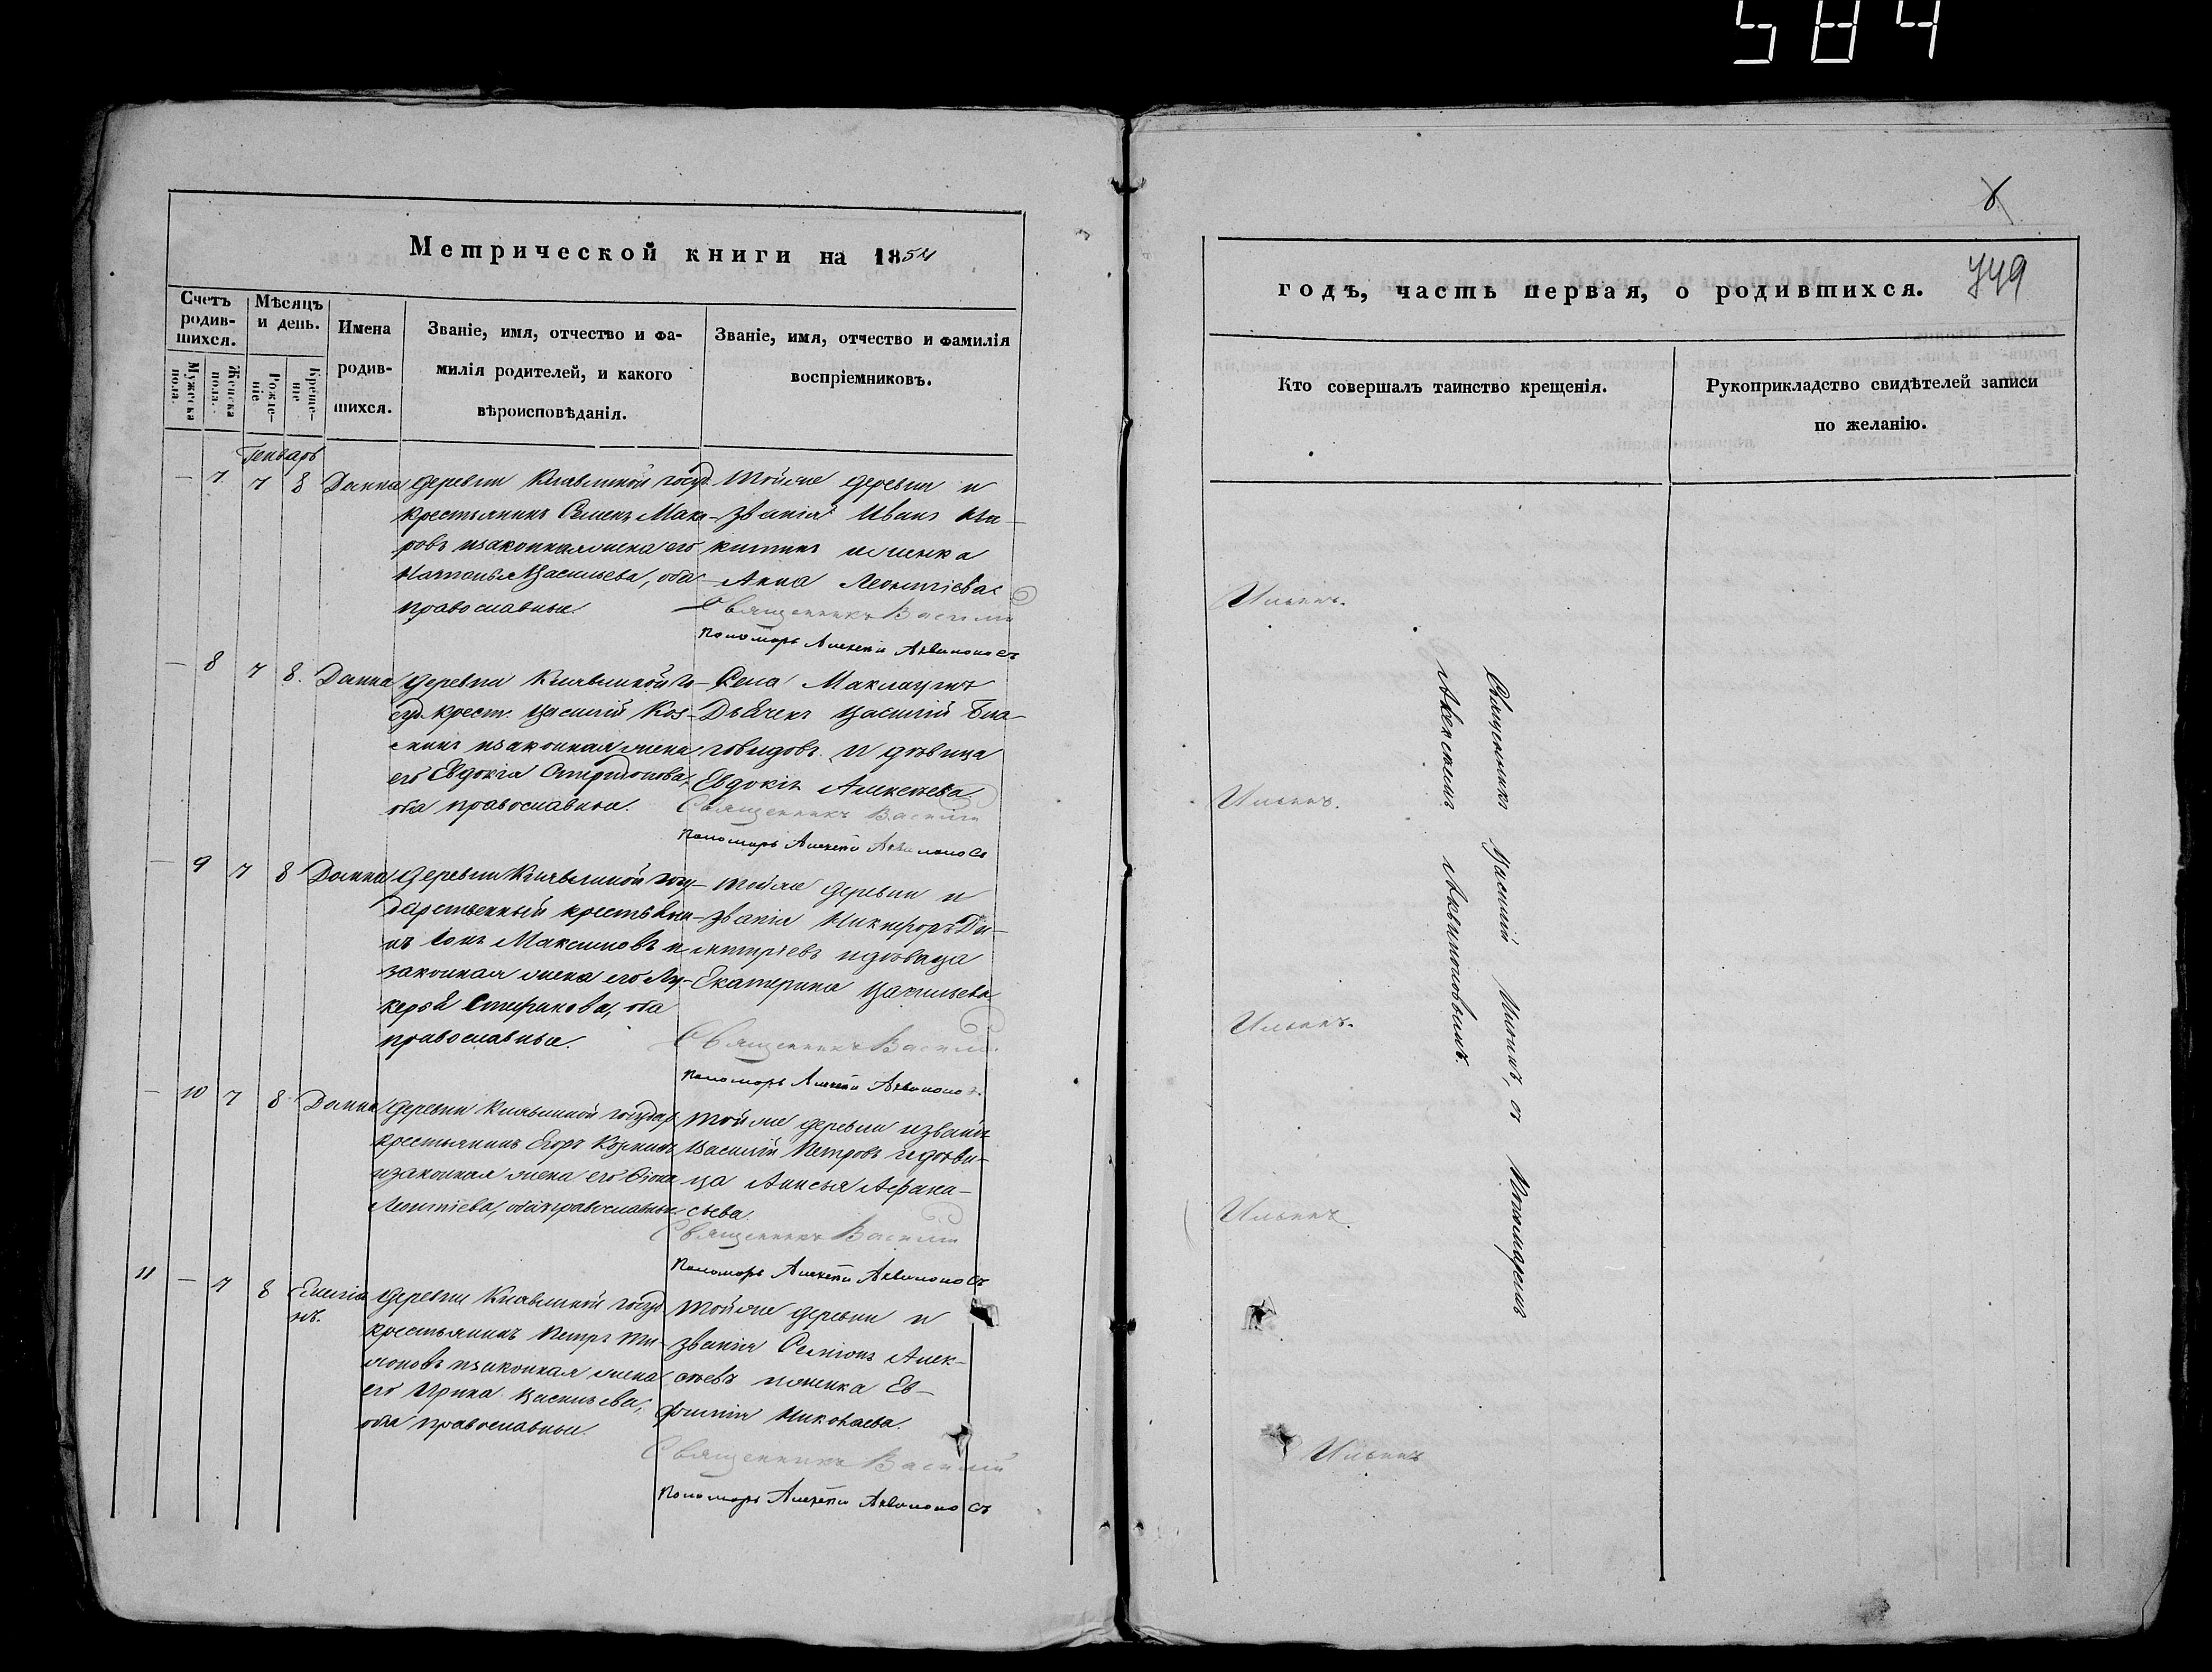 584
Метрической книги на 1854
Счетъ родив-шихся.
Мужеска пола.
Женска пола.
Мѣсяцъ и день.
Рожде-ніе.
Креще-ніе
Имена родив-шихся.
Званіе, имя, отчество и фа-
милія родителей, и какого
вѣроисповѣданія.
Званіе, имя, отчество и фамилія
воспріемниковъ.
Генварь
— 7 7 8 Домна
деревни госуд.
крестьянинъ Семенъ Мака-
ровъ изаконная жена его
Наталья Васильева, оба
православные.
тойже деревни и
званія Иванъ Ни-
китинъ иженка
Анна Леонтіева
Священникъ Василій
Пономарь Алексѣй Аквилоновъ
— 8 7 8. Домна
деревни го-
суд. крест. Василій Коз-
минъ изаконная жена
его Евдокія
оба православные.
Села
Дьячекъ Василій Бла-
говидовъ и дѣвица
Евдокія Алексѣева
Священникъ Василій
Пономарь Алексѣй Аквилоновъ
— 9 7 8 Домна
деревни госу-
дарственный крестьяни-
нъ Максимовъ и
законная жена его Лу-
керья Стефанова, оба
православные.
тойже деревни и
званія Никифоръ Ди-
митріевъ идѣвица
Екатерина Васильева
Священникъ Василій
Пономарь Алексѣй Аквилоновъ
— 10 7 8 Домна
деревни государ.
крестьянинъ Егоръ Козминъ
изаконная жена его
Леонтіева, оба православные
тойже деревни извания
Василій Петровъ идѣви-
ца Анисья Афана-
сьева.
Священникъ Василій
Пономарь Алексѣй Аквилоновъ
11 — 7 8 Емелія
нъ.
деревни госуд
крестьянинъ Петръ Ти-
моновъ изаконная жена
его Ирина Васильева,
оба православные.
тойже деревни и
званія Семіонъ Алек-
сѣевъ иженка Ев-
фимія Николаева.
Священникъ Василій
Пономарь Алексѣй Аквилоновъ
8
749
годъ, часть первая, о родившихся.
Кто совершалъ таинство крещенія.
Рукоприкладство свидѣтелей записи
по желанію.
Ильинъ.
Ильинъ.
Ильинъ.
Ильинъ
Ильинъ
Священникъ Василій Ильинъ, съ Пономаремъ
Алексѣемъ Аквилоновымъ.